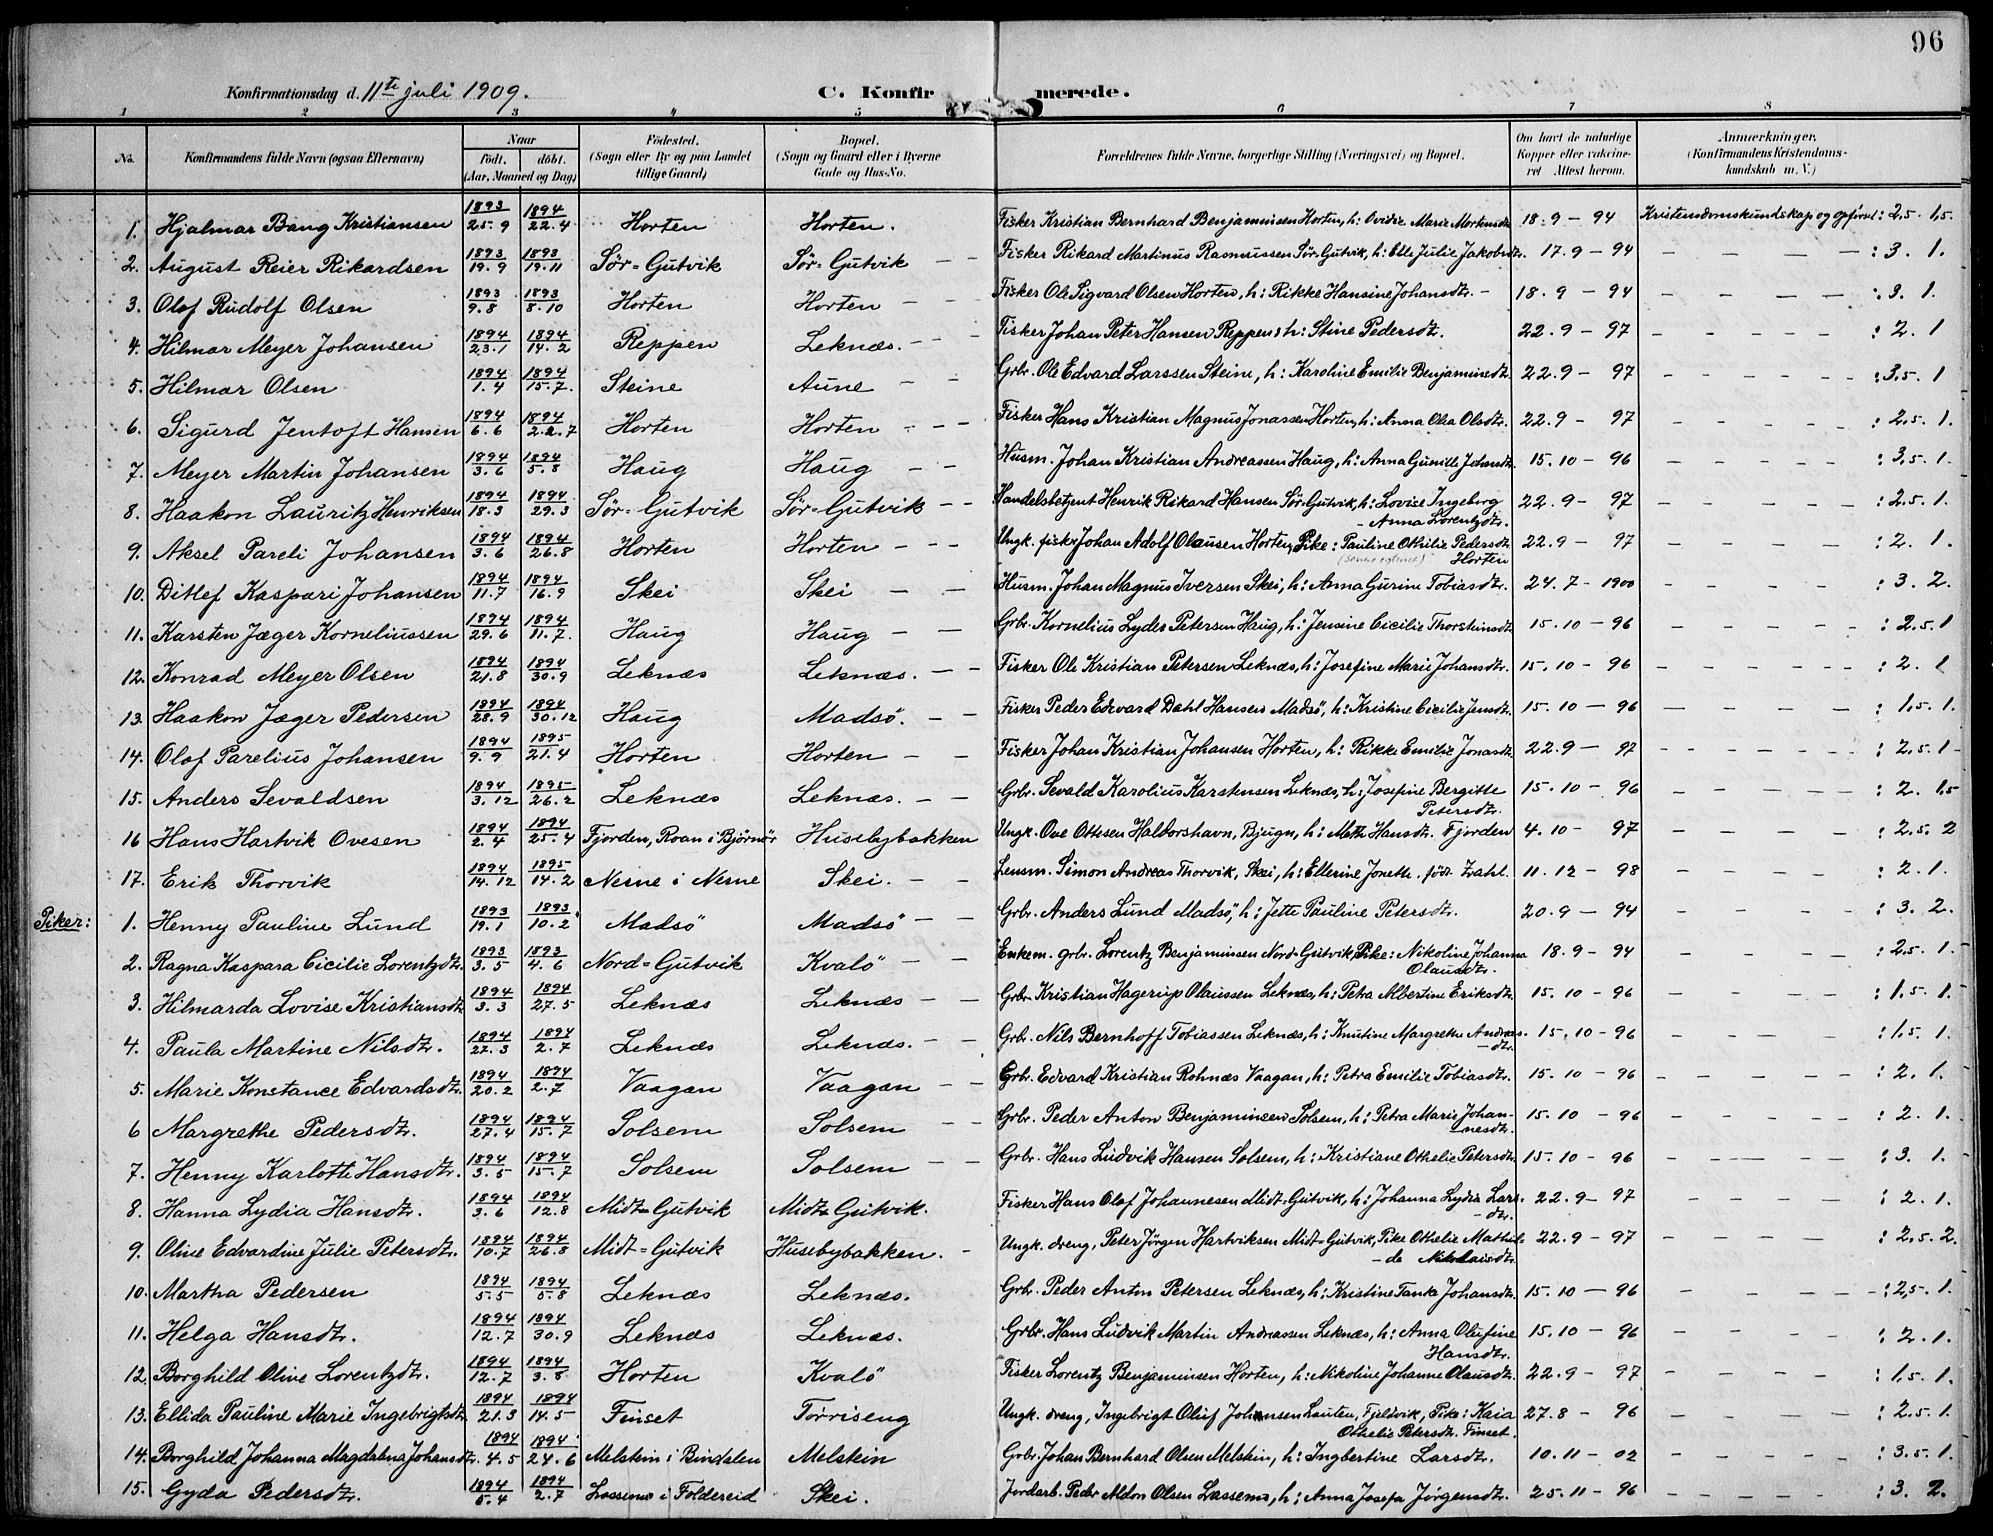 96
Konfirmationsdag d. 11te juli 1909. C. Konfirmerede.
1 2 3 4 5 6 7 8
No. Konfirmandens fulde Navn (ogsaa Efternavn) Naar født. døbt. (Aar, Maaned og Dag) Fødested. (Sogn eller By og paa Landet tillige Gaard) Bopæl. (Sogn og Gaard eller i Byerne Gade og Hus-No. Forældrenes fulde Navne, borgerlige Stilling (Næringsvei) og Bopæl. Om havt de naturlige Kopper eller vakcineret Attest herom. Anmærkninger. (Konfirmandens Kristendomskundskab m. V.)
1. Hjalmar Bang Kristiansen 1893 25.9 1894 22.4 Horten Horten. Fisker Kristian Bernhard Benjaminsen Horten, h: Ovidie Marie Mortensdtr. 18.9 - 94 Kristendomskundskap og opførsel: 2,5. 1,5.
2. August Reier Rikardsen 1893 19.9 1893 19.11 Sör-Gutvik Sör-Gutvik Fisker Rikard Martinus Rasmussen Sör-Gutvik, h: Elle Julie Jakobsdtr. 17.9 - 94 : 3. 1.
3. Olaf Rudolf Olsen 1893 9.8 1893 8.10 Horten Horten Fisker Ole Sigvard Olsen Horten, h: Rikke Hansine Johansdtr. 18.9 - 94 : 3. 1.
4. Hilmar Meyer Johansen 1894 23.1 1894 14.2 Reppen Leknæs. Fisker Johan Peter Hansen Reppen, h: Stine Pedersdtr. 22.9 - 97 : 2. 1
5. Hilmar Olsen 1894 1.4 1894 15.7. Steine Aune Grbr. Ole Edvard Larssen Steine, h: Karoline Emilie Benjaminsdtr. 22.9 - 97 : 3,5. 1
6. Sigurd Jentoft Hansen 1894 6.6 1894 2.2.7 Horten Horten Fisker Hans Kristian Magnus Jonassen Horten, h: Anna Olea Olsdtr. 22.9 - 97 : 2,5. 1.
7. Meyer Martin Johansen 1894 3.6 1894 5.8 Haug Haug Husm. Johan Kristian Andreassen Haug, h: Anna Gunille Johnsdtr. 15.10 - 96 : 3,5. 1.
8. Haakon Lauritz Henriksen 1894 18.3 1894 29.3 Sör-Gutvik Sör-Gutvik Handelsbetjent Henrik Rikard Hansen Sör-Gutvik, h: Lovise Ingeborg Anna Lorentzdtr. 22.9 - 97 : 2,5. 1.
9. Aksel Pareli Johansen 1894 3.6 1894 26.8 Horten Horten Ungk. fisker Johan Adolf Olausen Horten, Pike: Pauline Othilie Pedersdtr. Horten 22.9 - 97 : 2. 1.
10. Ditlef Kaspari Johansen 1894 11.7 1894 16.9 Skei Skei Husm. Johan Magnus Iversen Skei, h: Anna Gurine Tobiasdtr. 24.7 - 1900 : 3. 2.
11. Karsten Jæger Korneliussen 1894 29.6 1894 11.7. Haug Haug Grbr. Kornelius Lyder Petersen Haug, h: Jensine Cicilie Thorsteinsdtr. 15.10 - 96 : 2,5. 1
12. Konrad Meyer Olsen 1894 21.8 1894 30.9 Leknæs Leknæs. Fisker Ole Kristian Petersen Leknæs, h: Josefine Marie Johansdtr. 15.10 - 96 : 2. 1
13. Haakon Jæger Pedersen 1894 28.9 1894 30.12 Haug Madsö. Fisker Peder Edevard Dahl Hansen Madsö, h: Kristine Cicilie Jensdtr. 15.10 - 96 : 1,5. 1.
14. Olaf Parelius Johansen 1894 9.9 1895 21.4 Horten Horten Fisker Johan Kristian Johansen Horten, h: Rikke Emilie Jonasdtr. 22.9 - 97 : 2,5. 1
15. Anders Sevaldsen 1894 3.12 1895 26.2 Leknæs Leknæs. Grbr. Sevald Karolius Karstensen Leknæs, h: Josefine Bergitte Petersdtr. 15.10 - 96 : 2. 1,5
16 Hans Hartvik Ovesen 1894 2.4 1894 25.4 Fjorden, Roan i Björnör Husebybakken Ungk. Ove Ottesen Haldorshavn, Bjugn, h: Meth Hansdtr. Fjorden 4.10 - 97 : 2,5. 2
17. Erik Thorvik 1894 14.12 1895 14.2 Nesne i Nesne Skei. Lensm. Simon Andreas Thorvik, Skei, h: Ellerine Jonette født Zahl. 11.12 - 98 : 2. 1.
Piker: 1. Henny Pauline Lund 1893 19.1 1893 10.2 Madsö Madsö Grbr. Anders Lund Madsö, h: Jette Pauline Petersdtr. 20.9 - 94 : 3. 2.
2. Ragna Kaspara Cicilie Lorentzdtr. 1893 3.5 1893 4.6 Nord-Gutvik Kvalö Enkem. grbr. Lorentz Benjaminsen Nord-Gutvik, Pike: Nikoline Johanna Olausdtr. 18.9 - 94 : 2,5. 1.
3. Hilmarda Lovise Kristiansdtr. 1894 3.3 1894 27.5 Leknæs Leknæs Grbr. Kristian Hagerup Olaussen Leknæs, h: Petra Albertine Eriksdtr. 15.10 - 96 : 1,5. 1.
4. Paula Martine Nilsdtr. 1894 22.3 1894 2.7 Leknæs Leknæs. Grbr. Nils Bernhoff Tobiassen Leknæs, h: Knutine Margrethe Andreasdtr. 15.10 - 96 : 1,5. 1.
5. Marie Konstance Edvardsdtr. 1894 20.2 1894 2.7 Vaagan Vaagan Grbr. Edvard Kristian Rohnæs Vaagan, h: Petra Emilie Tobiasdtr. 15.10 - 96 : 2. 1.
6 Margrethe Pedersdtr. 1894 27.4 1894 15.7 Solsem Solsem Grbr. Peder Anton Benjaminsen Solsem, h: Petra Marie Johannesdtr. 15.10 - 96 : 2. 1.
7. Henny Karlotte Hansdtr. 1894 3.5 1894 15.7 Solsem Solsem Grbr. Hans Ludvik Hansen Solsem, h: Kristiane Othelie Petersdtr. 15.10 - 96 : 3. 1.
8. Hanna Lydia Hansdtr. 1894 3.6 1894 12.8 Midt-Gutvik Midt-Gutvik. Fisker Hans Olaf Johannesen Midt-Gutvik, h: Johanna Lydia Larsdtr. 22.9 - 97 : 2. 1.
9. Oline Edvardine Julie Petersdtr. 1894 10.7 1894 26.8 Midt-Gutvik Husebybakken. Ungk. dreng, Peter Jörgen Hartviksen Midt-Gutvik, Pike Othelie Mathilde Nikolaisdtr. 22.9 - 97 : 2,5. 2.
10. Martha Pedersen 1894 5.5 1894 5.8 Leknæs Leknæs. Grbr. Peder Anton Petersen Leknæs, h: Kristine Tanka Johansdtr. 15.10 - 96 : 2,5. 1.
11. Helga Hansdtr. 1894 12.7 1894 30.9 Leknæs Leknæs. Grbr. Hans Ludvik Martin Andreassen Leknæs, h: Anna Olufine Hansdtr. 15.10 - 96 : 2. 1.
12. Borghild Oline Lorentzdtr. 1894 12.7 1894 3.8 Horten Kvalö Fisker Lorentz Benjaminsen Horten, h: Nikoline Johanne Olausdtr. 22.9 - 97 : 1,5. 1.
13. Ellida Pauline Marie Ingebrigtsdtr. 1894 21.3 1894 14.5 Finset Torriseng Ungk. dreng, Ingebrigt Oluf Johansen Lauten, Fjeldvik, Pike: Kaia Othelie Petersdtr. Finset. 27.8 - 96 : 2,5. 1.
14. Borghild Johanna Magdalena Johansdtr. 1894 4.5 1894 24.6 Melstein i Bindalen Melstein Grbr. Johan Bernhard Olsen Melstein, h: Ingbertine Larsdtr. 10.11 - 02 : 3,5. 1.
15. Gyda Pedersdtr. 1894 5.4 1894 2.7 Lassemo i Foldereid Skei. Jordarb. Peder Aldon Olsen Lassemo, h: Anna Josefa Jörgensdtr. 25.11 - 96 : 3. 2.